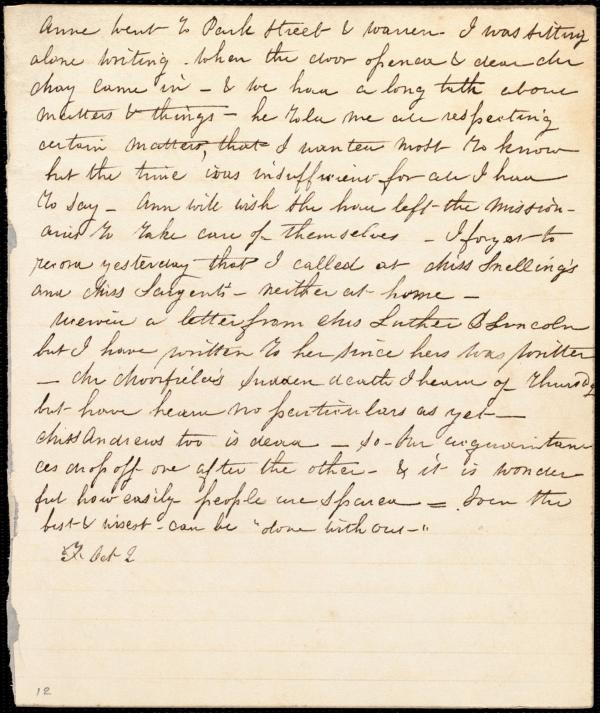 Anne went to Park Street & Warren - I was sitting
alone writing - when the door opened & dear Mr
May came in - & we had a long talk about
matters & things - he told me all respecting
certain matters, that I wanted most to know
but the time was insufficient for all I had
to say - Ann will wish she had left the mission-
aries to take care of themselves - I forgot to
record yesterday that I called at Miss Snelling's
and Miss Sargents - neither at home -
a letter from Mrs Luther Lincoln
but I have written to her since hers was written
- Mr sudden death I heard of Thursdy
but have heard no particulars as yet -
Miss Andrews too is dead - So our acquaintan
ces drop off one after the other - & it is wonder
ful how easily people are spared = Even the
best & wisest - can be "done without -"
Oct 2
12